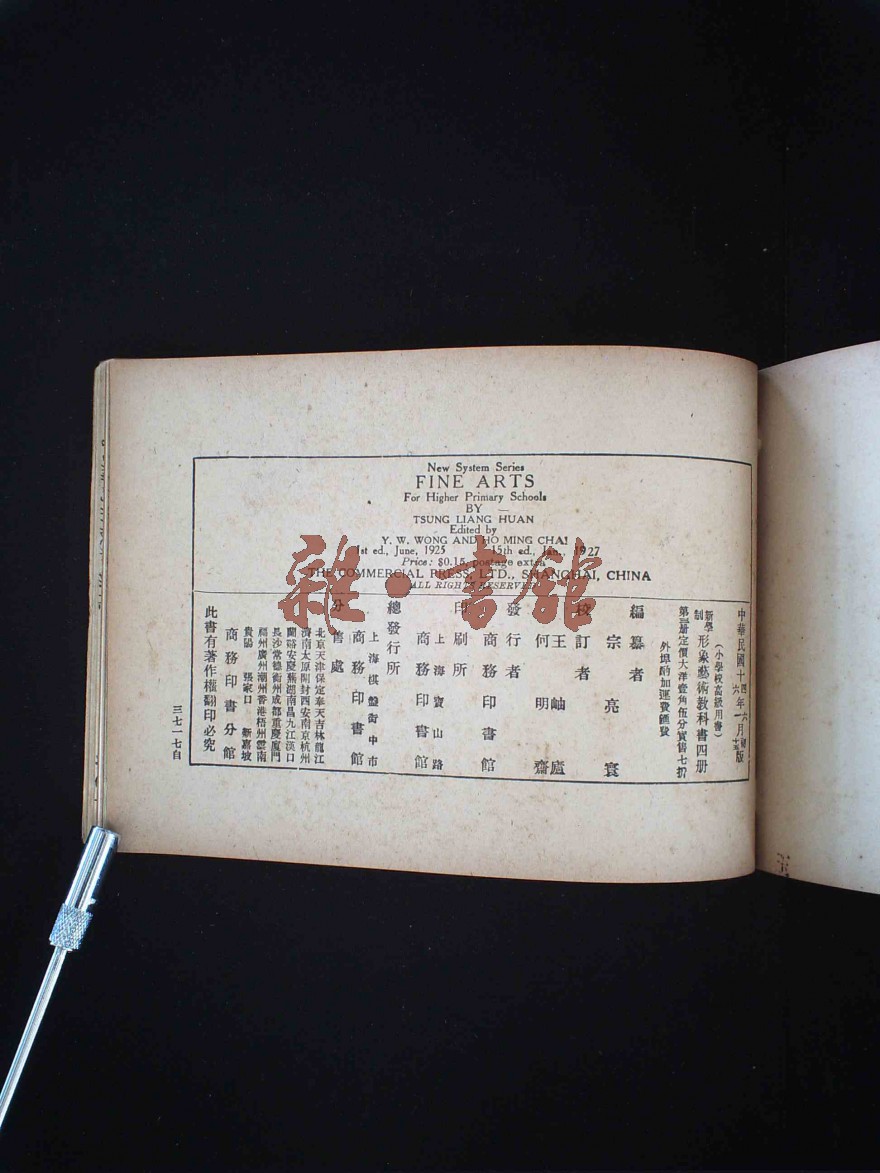 New System Series
FINE ARTS
For Higher Primary Schools
BY
TSUNG LIANG HUAN
Edited by
Y. W. WONG AND HO MING CHAI
1st ed., June, 1925 15th ed., Jan., 1927
Price: $0.15, postage extra
THE COMMERCIAL PRESS, LTD., SHANGHAI, CHINA
ALL RIGHTS RESERVED
雜·書館
中華民國十四年六月初版
十六年一月十五版
(小學校高級用書)
新學制形象藝術教科書四册
第三册定價大洋壹角伍分實售七折
外埠酌加運費匯費
編纂者 宗亮寰
校訂者 王岫廬
何明齋
發行者 商務印書館
印刷所 上海寶山路
商務印書館
總發行所 上海棋盤街中市
商務印書館
分售處
北京天津保定奉天吉林龍江
濟南太原開封西安南京杭州
蘭谿安慶蕪湖南昌九江漢口
長沙常德衡州成都重慶廈門
福州廣州潮州香港梧州雲南
貴陽 張家口 新嘉坡
商務印書分館
此書有著作權翻印必究
三七一七自